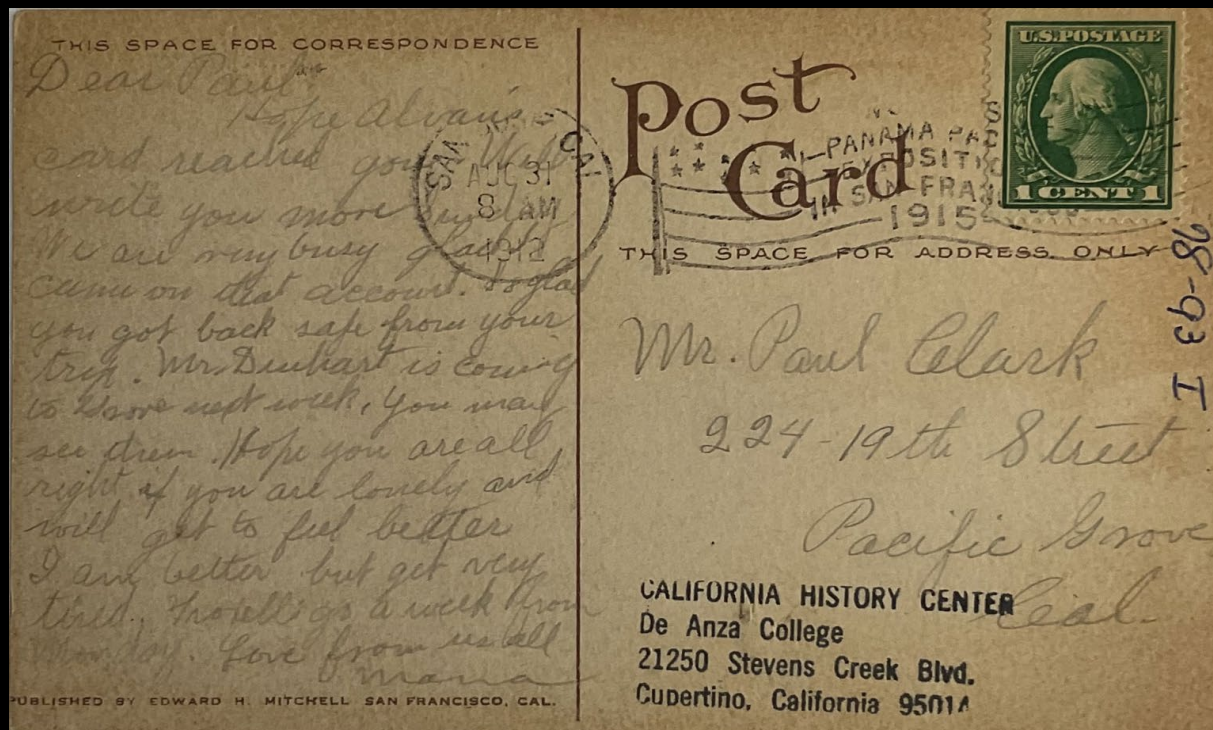 THIS SPACE FOR CORRESPONDENCE
Dear Paul
Hope Alvan's
card reached you. Will
write you more
We are very busy
came on that account. So glad
you got back safe from your
trip. Mr. Denhart is coming
to Grove next week, you may
see them. Hope you are all
right if you are lonely and
will get to feel better
I am better but get very
tired. go a week from
Monday. Love from us all
Mama
PUBLISHED BY EDWARD H. MITCHELL SAN FRANCISCO, CAL.
CAL
AUG 31
8 AM
1912
Post
Card
PANAMA PAC
EXPOSITI
IN SAN FRA
1915
U.S. POSTAGE
1 CENT 1
THIS SPACE FOR ADDRESS ONLY
98-93 I
Mr. Paul Clark
224-19th Street
Pacific Grove
Cal.
CALIFORNIA HISTORY CENTER
De Anza College
21250 Stevens Creek Blvd.
Cupertino, California 95014